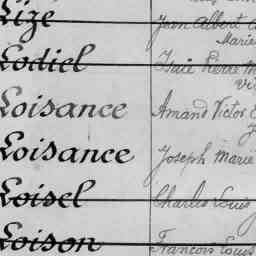 Lize Jean Albert
Marie
Lodiel Isaie Pierre
Loisance Amand Victor
Loisance Joseph Marie
Loisel Charles Louis
Loison François Louis